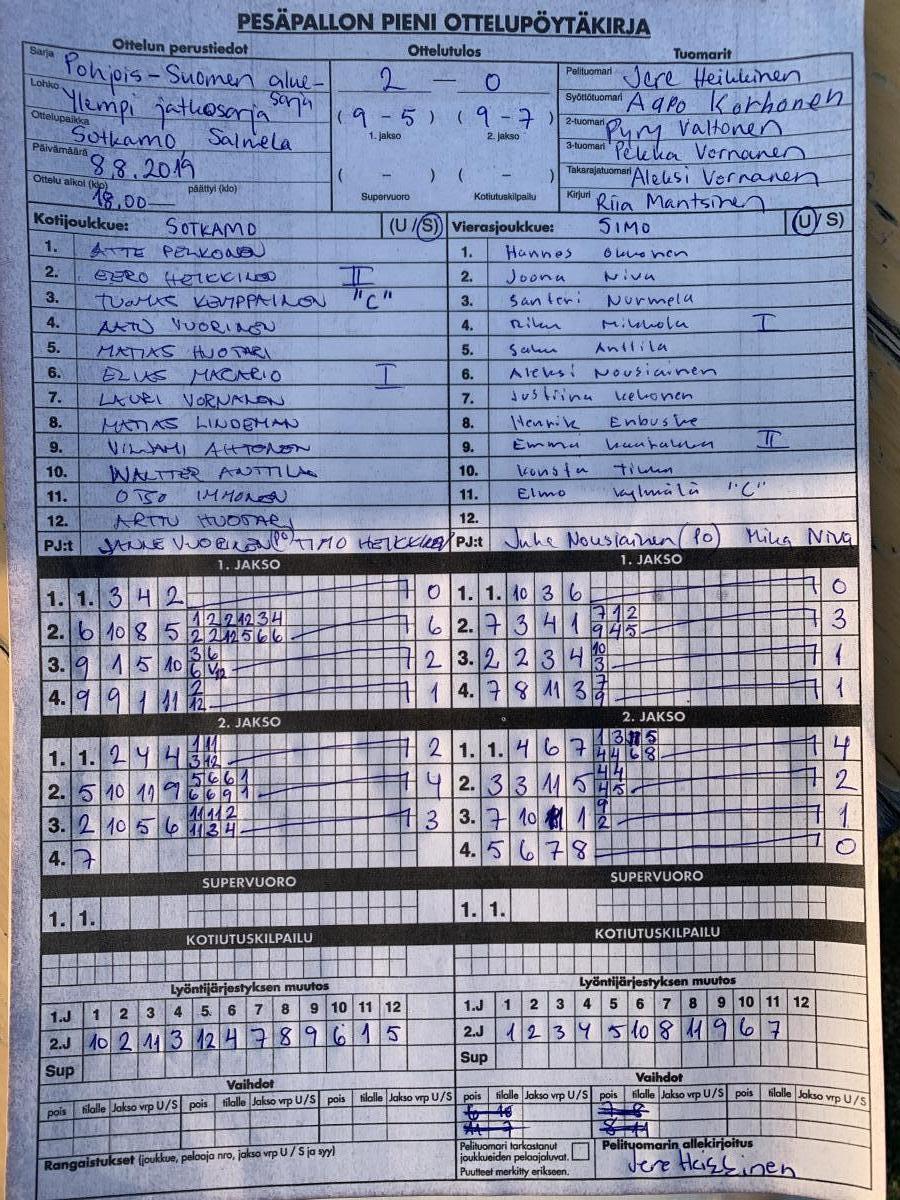 PESÄPALLON PIENI OTTELUPÖYTÄKIRJA
Ottelun perustiedot
Sarja Pohjois-Suomen alue-
sarja
Lohko Ylempi jatkosarja
Ottelupaikka Sotkamo, Salmela
Päivämäärä 8.8.2019
Ottelu alkoi (klo) 18.00— päättyi (klo)
Ottelutulos
2 — 0
( 9 - 5 ) ( 9 - 7 )
1. jakso 2. jakso
( - ) ( - )
Supervuoro Kotiutuskilpailu
Tuomarit
Pelituomari Jere Heikkinen
Syöttötuomari Aapo Korhonen
2-tuomari Pyry Valtonen
3-tuomari Pekka Vornanen
Takarajatuomari Aleksi Vornanen
Kirjuri Riia Mantsinen
Kotijoukkue: SOTKAMO (U / S)
1. ATTE PELKONEN
2. EERO HEIKKINEN II
3. TUOMAS KEMPPAINEN "C"
4. AATU VUORINEN
5. MATIAS HUOTARI
6. ELIAS MACARIO I
7. LAURI VORNANEN
8. MATIAS LINDEMAN
9. VILJAMI AHTONEN
10. WALTTER ANTTILA
11. OTSO IMMONEN
12. ARTTU HUOTARI
PJ:t JANNE VUORINEN (PO) TIMO HEIKKINEN
Vierasjoukkue: SIMO (U / S)
1. Hannes
2. Joona Niva
3. Santeri Nurmela
4. Riku Mikkola I
5. Saku Anttila
6. Aleksi Nousiainen
7. Justiina Kekonen
8. Henrik Enbuske
9. Emma II
10. Konsta
11. Elmo Kylmälä "C"
12.
PJ:t Juha Nousiainen (PO) Mika Niva
1. JAKSO
1. 1. 3 4 2 0
2. 6 10 8 5 6
3. 9 1 5 10 2
4. 9 9 1 11 2 12 1
1. JAKSO
1. 1. 10 3 6 0
2. 7 3 4 1 7 1 2 9 4 5 3
3. 2 2 3 4 10 3 1
4. 7 8 11 3 7 9 1
2. JAKSO
1. 1. 2 4 4 2
2. 5 10 11 9 5 6 6 1 6 6 9 1 4
3. 2 10 5 6 3
4. 7
2. JAKSO
1. 1. 4 6 7 4
2. 3 3 11 5 4 4 4 5 2
3. 7 10 1 9 2 1
4. 5 6 7 8 0
SUPERVUORO
1. 1.
SUPERVUORO
1. 1.
KOTIUTUSKILPAILU
KOTIUTUSKILPAILU
Lyöntijärjestyksen muutos
1.J 1 2 3 4 5 6 7 8 9 10 11 12
2.J 10 2 11 3 12 4 7 8 9 6 1 5
Sup
Lyöntijärjestyksen muutos
1.J 1 2 3 4 5 6 7 8 9 10 11 12
2.J 1 2 3 4 5 10 8 11 9 6 7
Sup
Vaihdot
pois tilalle Jakso vrp U / S pois tilalle Jakso vrp U / S pois tilalle Jakso vrp U / S
Vaihdot
pois tilalle Jakso vrp U / S pois tilalle Jakso vrp U / S pois tilalle Jakso vrp U / S
Rangaistukset (joukkue, pelaaja nro, jakso vrp U / S ja syy)
Pelituomari tarkastanut
joukkueiden pelaajaluvat.
Puutteet merkitty erikseen.
Pelituomarin allekirjoitus
Jere Heikkinen